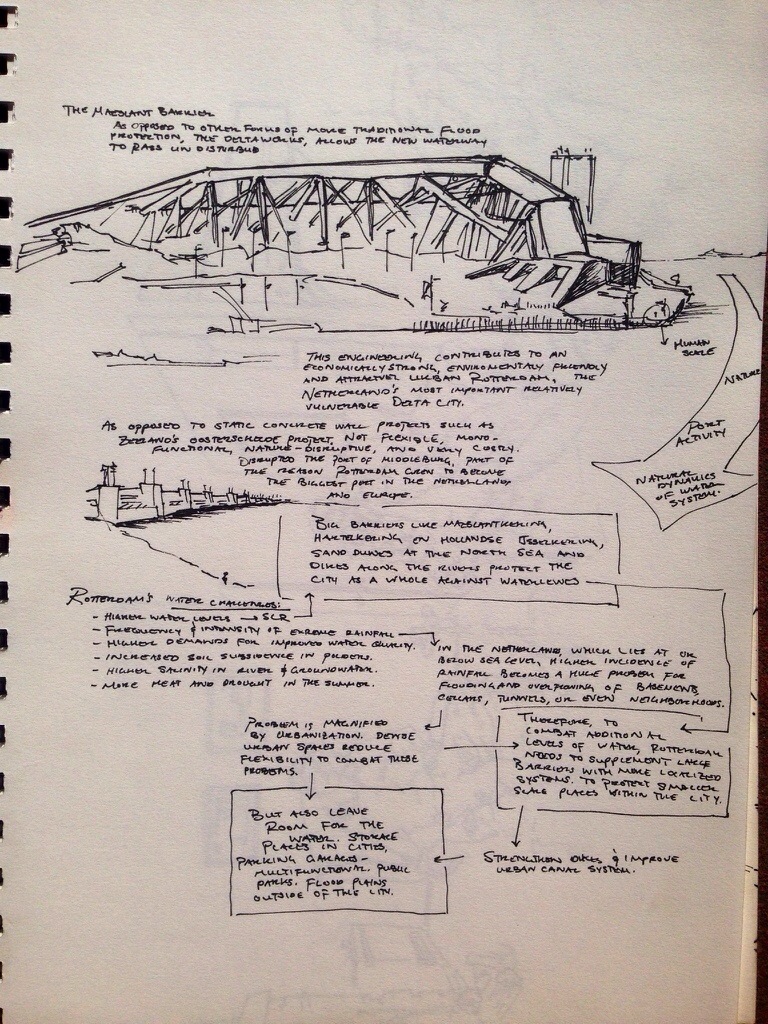 THE MAESLANT BARRIER
AS OPPOSED TO OTHER FORMS OF MORE TRADITIONAL FLOOD
PROTECTION, THE DELTAWORKS, ALLOWS THE NEW WATERWAY
TO PASS UNDISTURBED
HUMAN
SCALE
NATURE
PORT
ACTIVITY
NATURAL
DYNAMICS
OF WATER
SYSTEM.
THIS ENGINEERING CONTRIBUTES TO AN
ECONOMICALLY STRONG, ENVIROMENTALY FRIENDLY
AND ATTRACTIVE URBAN ROTTERDAM, THE
NETHERLAND'S MOST IMPORTANT RELATIVELY
VULNERABLE DELTA CITY.
AS OPPOSED TO STATIC CONCRETE WALL PROJECTS SUCH AS
ZEELAND'S OOSTERSCHELDE PROJECT, NOT FLEXIBLE, MONO-
FUNCTIONAL, NATURE-DISRUPTIVE, AND VERY COSTLY.
DISRUPTED THE PORT OF MIDDELBURG, PART OF
THE REASON ROTTERDAM GREW TO BECOME
THE BIGGEST PORT IN THE NETHERLANDS
AND EUROPE.
BIG BARRIERS LIKE MAESLANTKERING,
HARTELKERING EN HOLLANDSE IJSSELKERING,
SAND DUNES AT THE NORTH SEA AND
DIKES ALONG THE RIVERS PROTECT THE
CITY AS A WHOLE AGAINST WATERLEVELS
ROTTERDAM'S WATER CHALLENGES:
- HIGHER WATER LEVELS → SLR
- FREQUENCY & INTENSITY OF EXTREME RAINFALL
- HIGHER DEMANDS FOR IMPROVED WATER QUALITY.
- INCREASED SOIL SUBSIDENCE IN POLDERS.
- HIGHER SALINITY IN RIVER & GROUNDWATER.
- MORE HEAT AND DROUGHT IN THE SUMMER.
IN THE NETHERLANDS, WHICH LIES AT OR
BELOW SEA LEVEL, HIGHER INCIDENCE OF
RAINFALL BECOMES A HUGE PROBLEM FOR
FLOODING AND OVERFLOWING OF BASEMENTS,
CELLARS, TUNNELS, OR EVEN NEIGHBORHOODS.
PROBLEM IS MAGNIFIED
BY URBANIZATION. DENSE
URBAN SPACES REDUCE
FLEXIBILITY TO COMBAT THESE
PROBLEMS.
THEREFORE, TO
COMBAT ADDITIONAL
LEVELS OF WATER, ROTTERDAM
NEEDS TO SUPPLEMENT LARGE
BARRIERS WITH MORE LOCALIZED
SYSTEMS. TO PROTECT SMALLER
SCALE PLACES WITHIN THE CITY.
BUT ALSO LEAVE
ROOM FOR THE
WATER. STORAGE
PLACES IN CITIES,
PARKING GARAGES -
MULTIFUNCTIONAL. PUBLIC
PARKS. FLOOD PLAINS
OUTSIDE OF THE CITY.
STRENGTHEN DIKES & IMPROVE
URBAN CANAL SYSTEM.